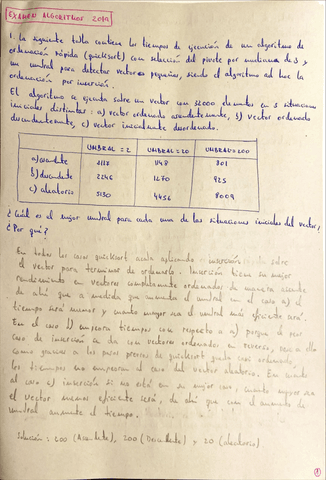 EXAMEN ALGORITMOS 2019
1. la siguiente tabla contiene los tiempos de ejecución de un algoritmo de
ordenación rápida (quicksort) con selección del pivote por mediana de 3 y
un umbral para detectar vectores pequeños, siendo el algoritmo ad hoc la
ordenación por inserción.
El algoritmo se ejecuta sobre un vector con elementos en 3 situaciones
iniciales distintas: a) vector ordenado ascendentemente, b) vector ordenado
descendentemente, c) vector inicialmente desordenado.
UMBRAL = 2 UMBRAL = 20 UMBRAL = 200
a) ascendente 1148 801
b) descendente 2246 1270 925
c) aleatorio 4456 8009
¿Cuál es el mejor umbral para cada una de las situaciones iniciales del vector,
¿Por qué?
En todos los casos quicksort acaba aplicando inserción sobre
el vector para terminar de ordenarlo. Inserción tiene su mejor
rendimiento en vectores completamente ordenados de manera
de ahí que a medida que aumenta el umbral en el caso a) el
tiempo será menor y cuanto mayor sea el umbral más eficiente será.
En el caso b) empeora tiempos con respecto a a) porque el peor
caso de inserción se da con vectores ordenados en reverso, pero a ello
como gracias a los pasos previos de quicksort queda casi ordenado
los tiempos no empeoran el caso del vector aleatorio. En cuanto
al caso c) inserción si no está en su mejor caso, cuanto mayor sea
el vector menos eficiente será, de ahí que con el aumento de
umbral aumente el tiempo.
Solución: 200 (Ascendente), 200 (Descendente) y 20 (aleatorio)
1